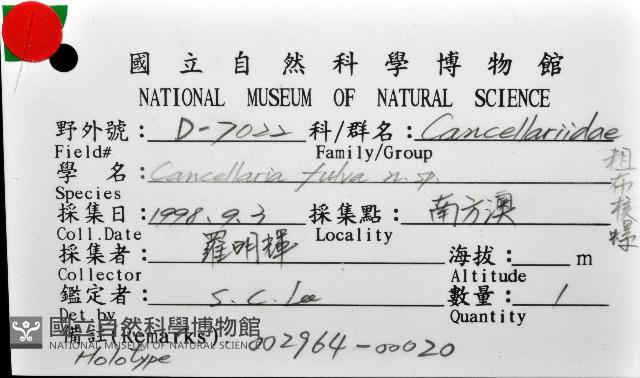 國立自然科學博物館
NATIONAL MUSEUM OF NATURAL SCIENCE
野外號: D-7022 科/群名: Cancellariidae
Field# Family/Group
學 名: Cancellaria fulva n. sp.
Species
採集日: 1998.9.3 採集點: 南方澳
Coll.Date Locality
採集者: 羅明輝 海拔: m
Collector Altitude
鑑定者: S. C. Lee 數量: 1
Det.by Quantity
備註(Remarks): 002964-00020
Holotype
國立自然科學博物館
NATIONAL MUSEUM OF NATURAL SCIENCE
布核螺